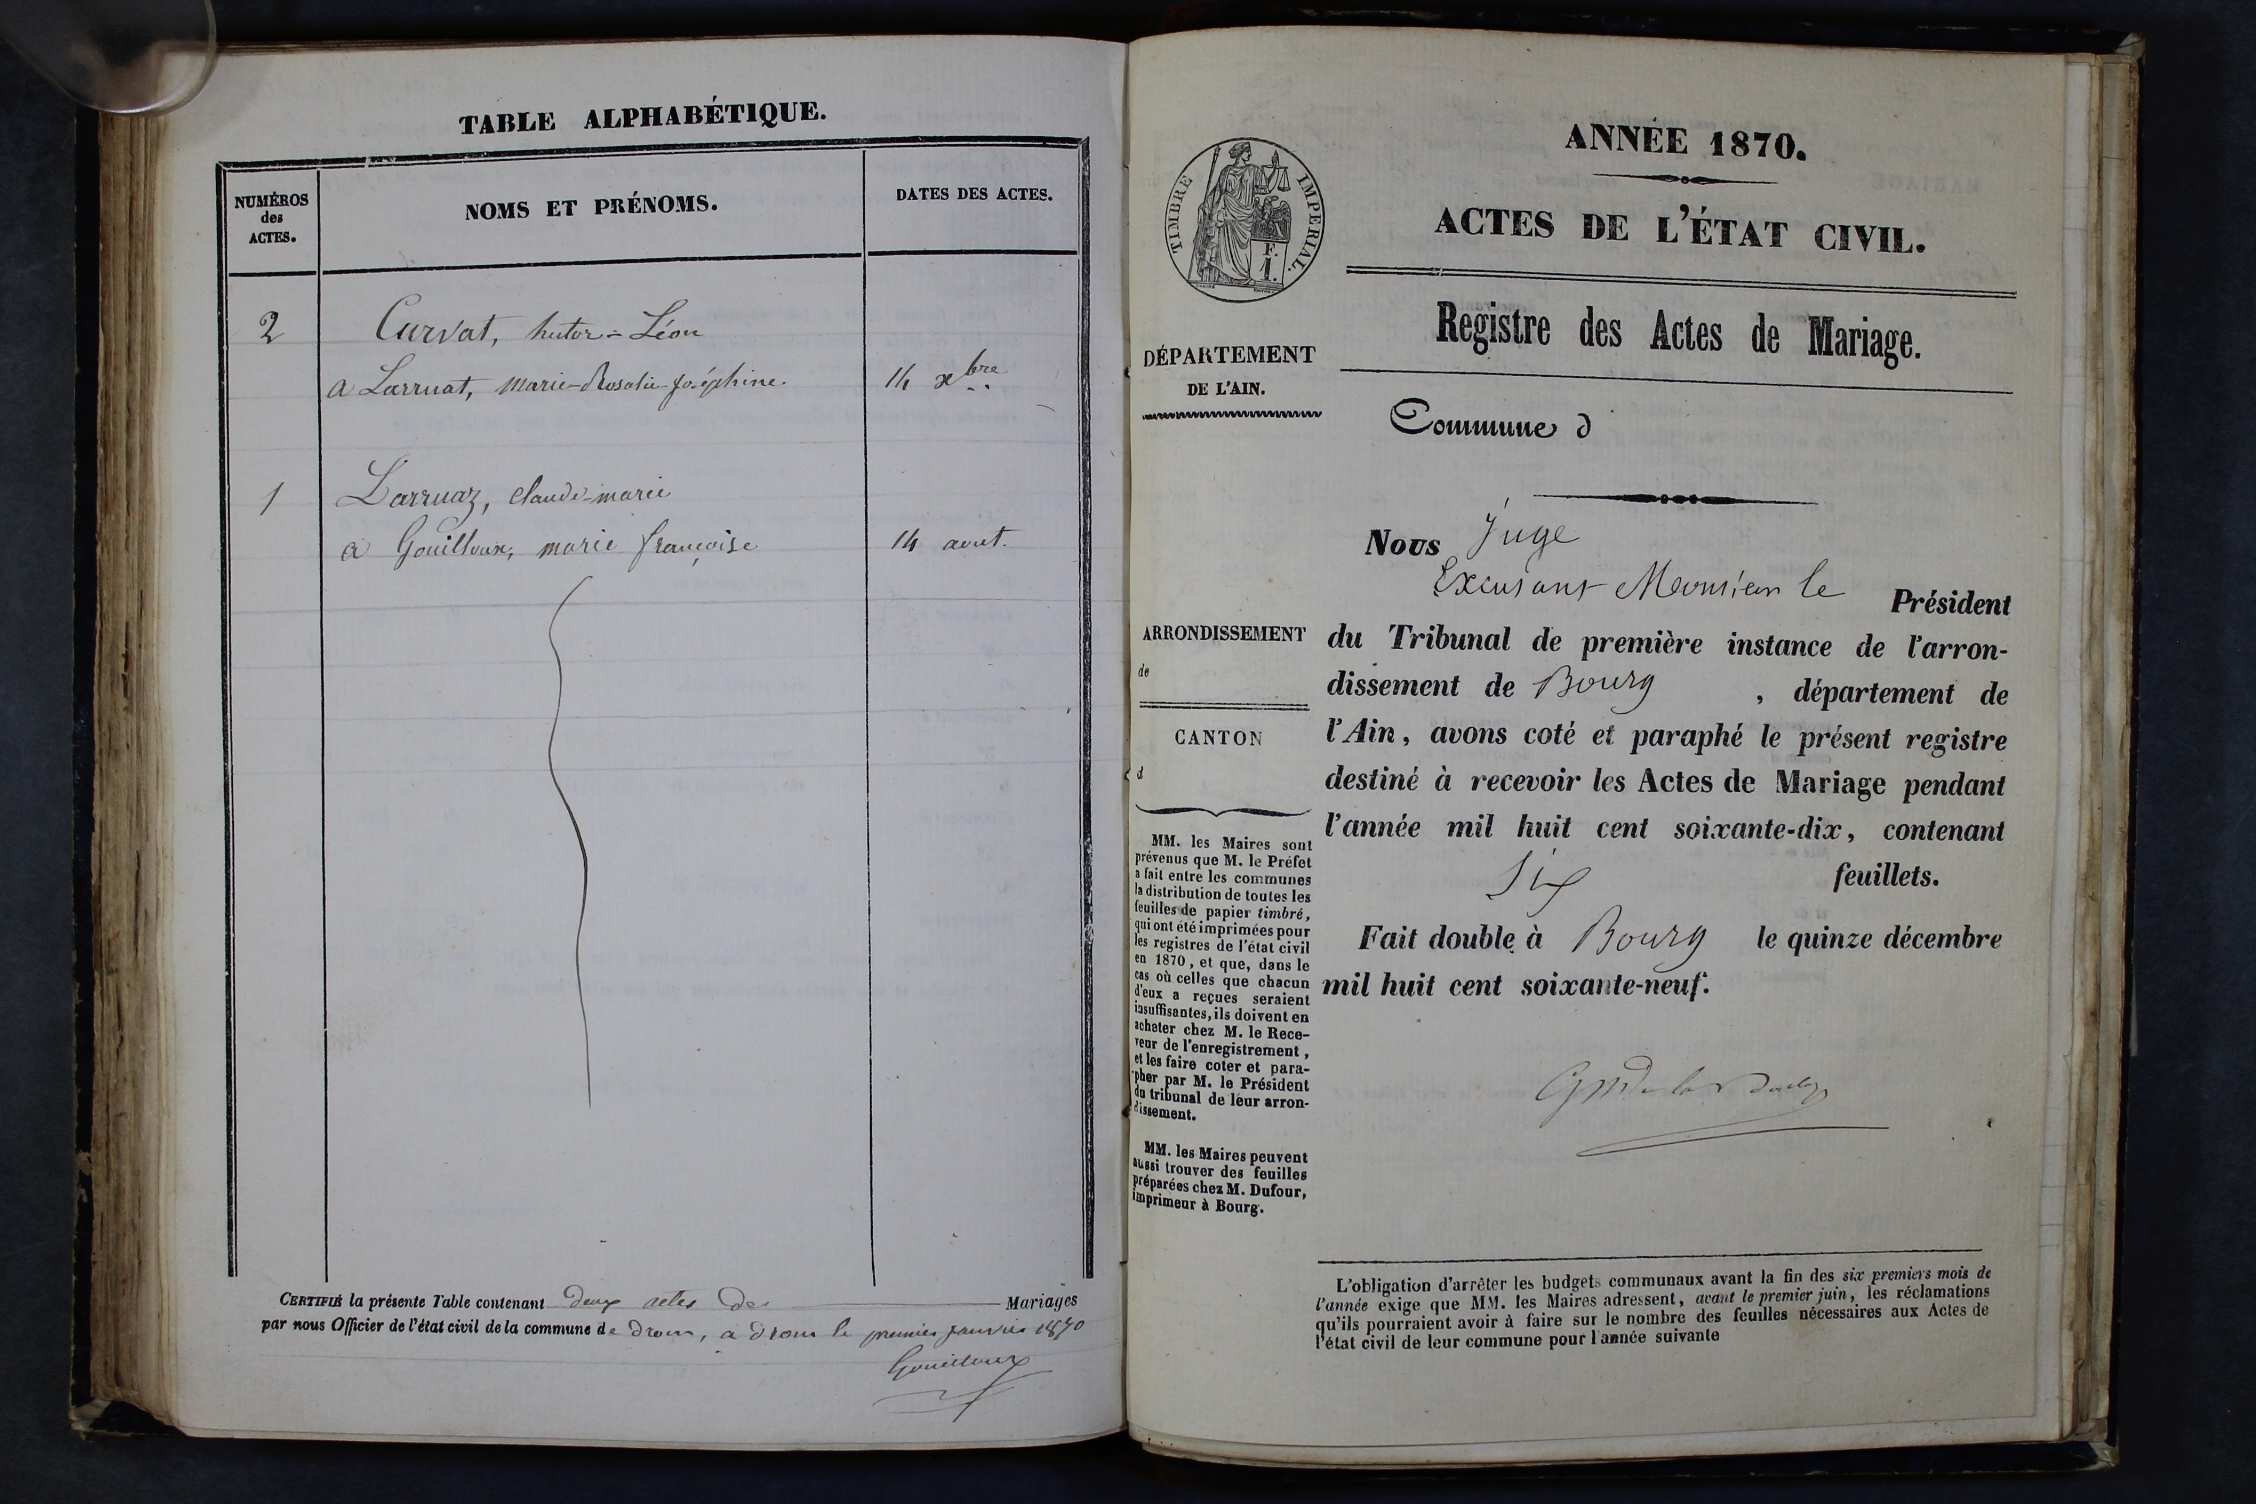 TABLE ALPHABÉTIQUE.
NUMÉROS
des
ACTES.
NOMS ET PRÉNOMS.
DATES DES ACTES.
2
Curvat, hutor=Léon
a Larruat, marie-Rosalie-Joséphine.
14 xbre
1
Larruaz, claude-marie
a Gouilloux, marie françoise
14 aout.
CERTIFIÉ la présente Table contenant deux actes de Mariages
par nous Officier de l'état civil de la commune de drom, a drom le premier janvier 1870
Gouilloux
TIMBRE IMPERIAL.
F.
1.
ANNÉE 1870.
ACTES DE L'ÉTAT CIVIL.
Registre des Actes de Mariage.
DÉPARTEMENT
DE L'AIN.
Commune d
ARRONDISSEMENT
de
CANTON
d
MM. les Maires sont
prévenus que M. le Préfet
a fait entre les communes
la distribution de toutes les
feuilles de papier timbré,
qui ont été imprimées pour
les registres de l'état civil
en 1870, et que, dans le
cas où celles que chacun
d'eux a reçues seraient
insuffisantes, ils doivent en
acheter chez M. le Rece-
veur de l'enregistrement,
et les faire coter et para-
pher par M. le Président
du tribunal de leur arron-
dissement.
MM. les Maires peuvent
aussi trouver des feuilles
préparées chez M. Dufour,
imprimeur à Bourg.
Nous Juge
Excusant Monsieur le Président
du Tribunal de première instance de l'arron-
dissement de Bourg, département de
l'Ain, avons coté et paraphé le présent registre
destiné à recevoir les Actes de Mariage pendant
l'année mil huit cent soixante-dix, contenant
Six feuillets.
Fait double à Bourg le quinze décembre
mil huit cent soixante-neuf.
L'obligation d'arrêter les budgets communaux avant la fin des six premiers mois de
l'année exige que MM. les Maires adressent, avant le premier juin, les réclamations
qu'ils pourraient avoir à faire sur le nombre des feuilles nécessaires aux Actes de
l'état civil de leur commune pour l'année suivante